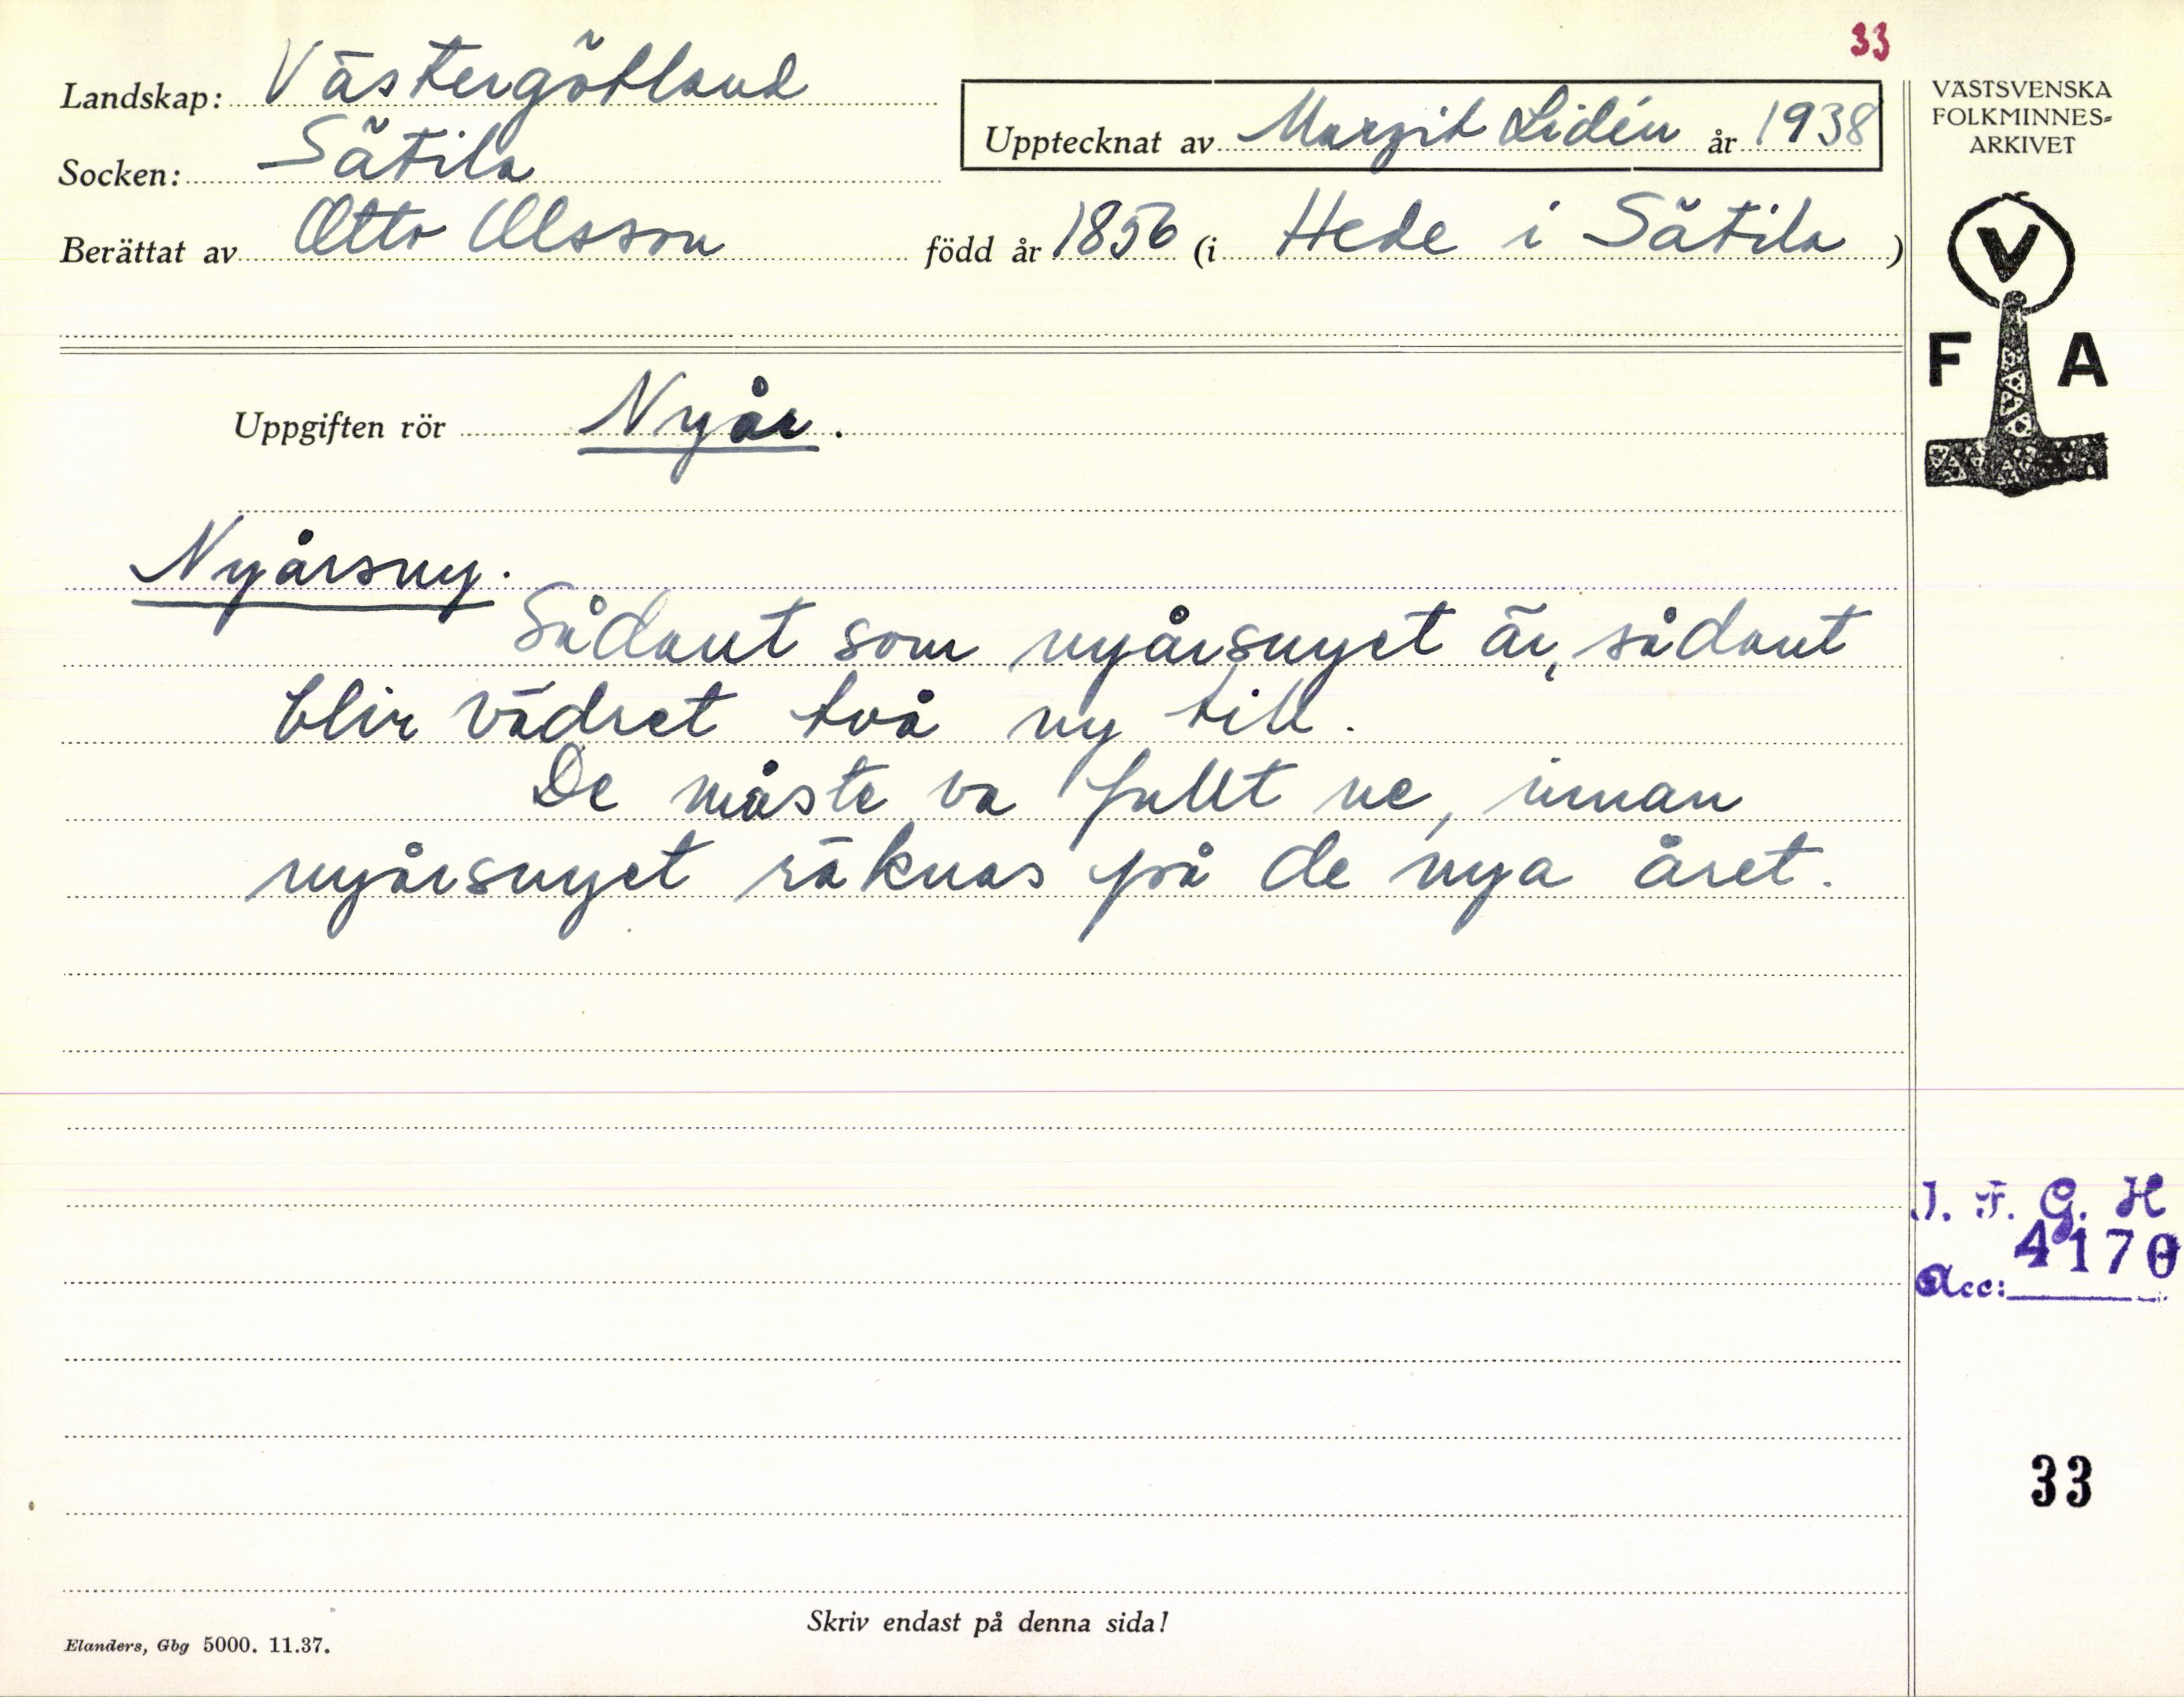 33
Landskap: Västergötland
Socken: Sätila
Upptecknat av Margit Lidén år 1938
Berättat av Otto Olsson född år 1856 (i Hede i Sätila )
VÄSTSVENSKA
FOLKMINNES=
ARKIVET
V
F A
Uppgiften rör Nyår.
Nyårsny.
Sådant som nyårsnyet är, sådant
blir vädret två ny till.
De måste va fullt ne, innan
nyårsnyet räknas på de nya året.
I. F. G. H
Acc: 4170
33
Skriv endast på denna sida!
Elanders, Gbg 5000. 11.37.